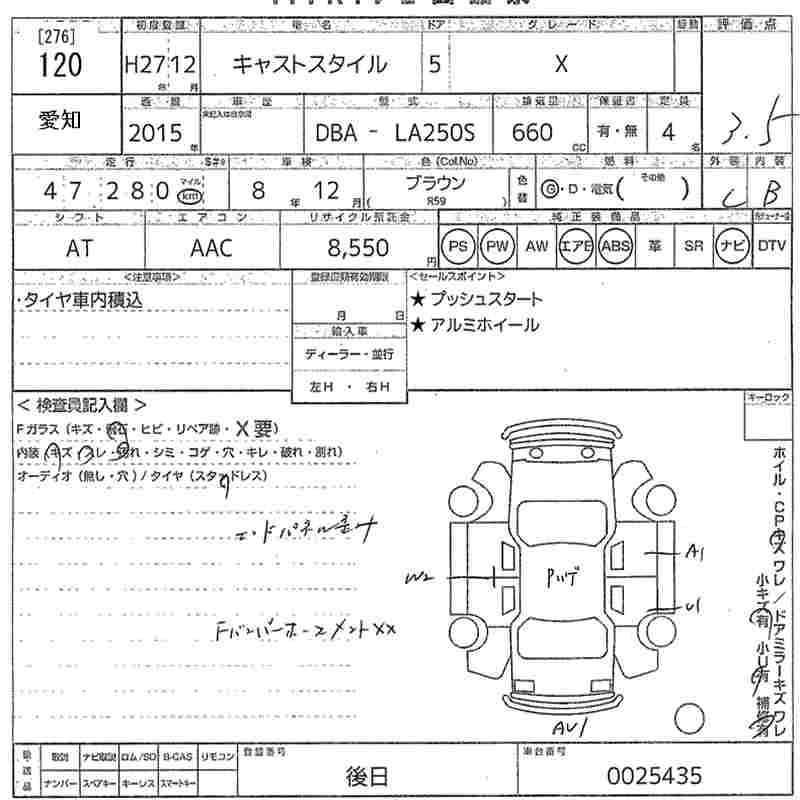 [276]
120
初度登録
車名
ドア
グレード
駆動
評価点
H27 12
年 月
キャストスタイル
5
X
愛知
車歴
型式
排気量
保証書
定員
2015
年
DBA - LA250S
660
cc
有・無
4
名
3.5
走行
車検
色 (Col.No)
燃料
外装
内装
47 280
マイル
km
8
年
12
月
ブラウン
R59
色替
G・D・電気( その他 )
C
B
シフト
エアコン
リサイクル預託金
純正装備品
AT
AAC
8,550
円
PS
PW
AW
エアB
ABS
革
SR
ナビ
DTV
<注意事項>
登録書類有効期限
<セールスポイント>
・タイヤ車内積込
月 日
★ プッシュスタート
★ アルミホイール
輸入車
ディーラー・並行
左H ・ 右H
< 検査員記入欄 >
キーロック
Fガラス (キズ・飛石・ヒビ・リペア跡・X要)
内装 (キズ・スレ・汚れ・シミ・コゲ・穴・キレ・破れ・割れ)
オーディオ (無し・穴) / タイヤ (スタッドレス)
Fバンパーホースメント XX
W2
A1
U1
AU1
ホイル・CPキズ ワレ / ドアミラーキズ ワレ
小キズ有 小U有 補修有
後送品
取説
ナビ取説
ロム/SD
B-CAS
リモコン
ナンバー
スペアキー
キーレス
スマートキー
登録番号
後日
車台番号
0025435